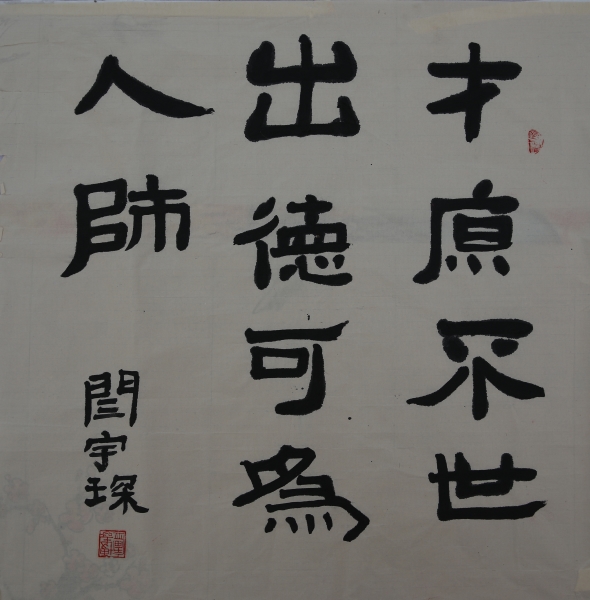 才原不世
出德可為
人師
閆宇琛